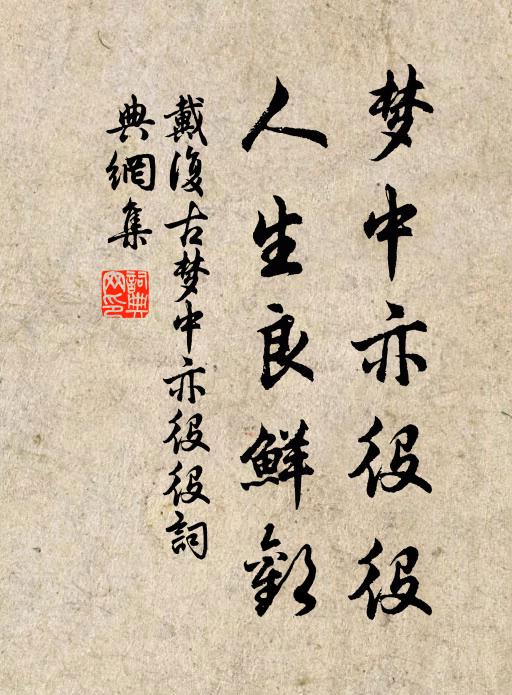 梦中亦役役
人生良鮮歡
戴復古梦中亦役役詞
典網集
詞典
网印